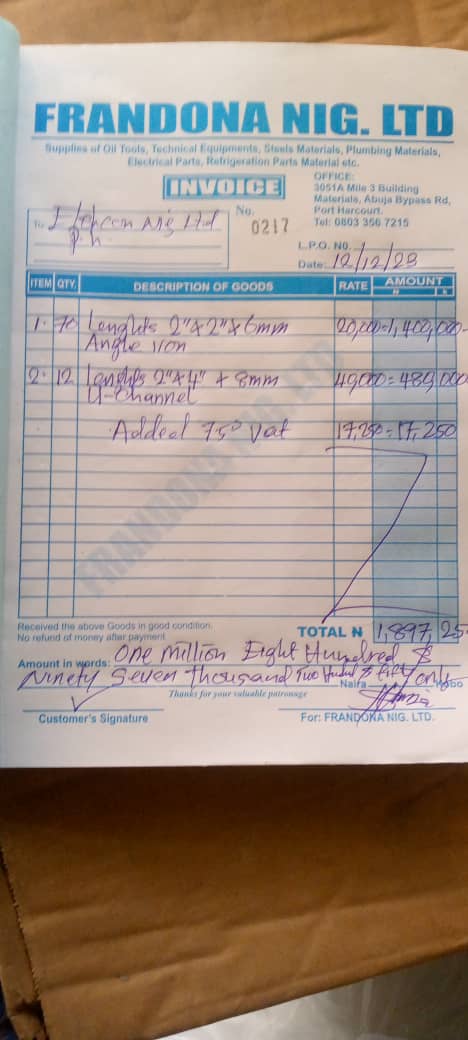 FRANDONA NIG. LTD
Supplies of Oil Tools, Technical Equipments, Steels Materials, Plumbing Materials,
Electrical Parts, Refrigeration Parts Material etc.
INVOICE
OFFICE:
3051A Mile 3 Building
Materials, Abuja Bypass Rd,
Port Harcourt.
Tel: 0803 356 7215
No. 0217
To Nig Ltd
P.h.
L.P.O. NO.
Date: 12/12/23
ITEM QTY. DESCRIPTION OF GOODS RATE AMOUNT
N K
1. 70 Lenghts 2"x2"x6mm 20,000=1,400,000
Angle iron
2. 12 Lenghts 2"x4" + 8mm 40,000=480,000
U-Channel
Added 7.5% Vat 17,250=17,250
FRANDONA NIG. LTD
Received the above Goods in good condition.
No refund of money after payment
TOTAL N 1,897,25
Amount in words: One million Eight Hundred &
Ninety Seven Thousand Two Hund & Fifty only
Naira Kobo
Thanks for your valuable patronage
Customer's Signature
For: FRANDONA NIG. LTD.